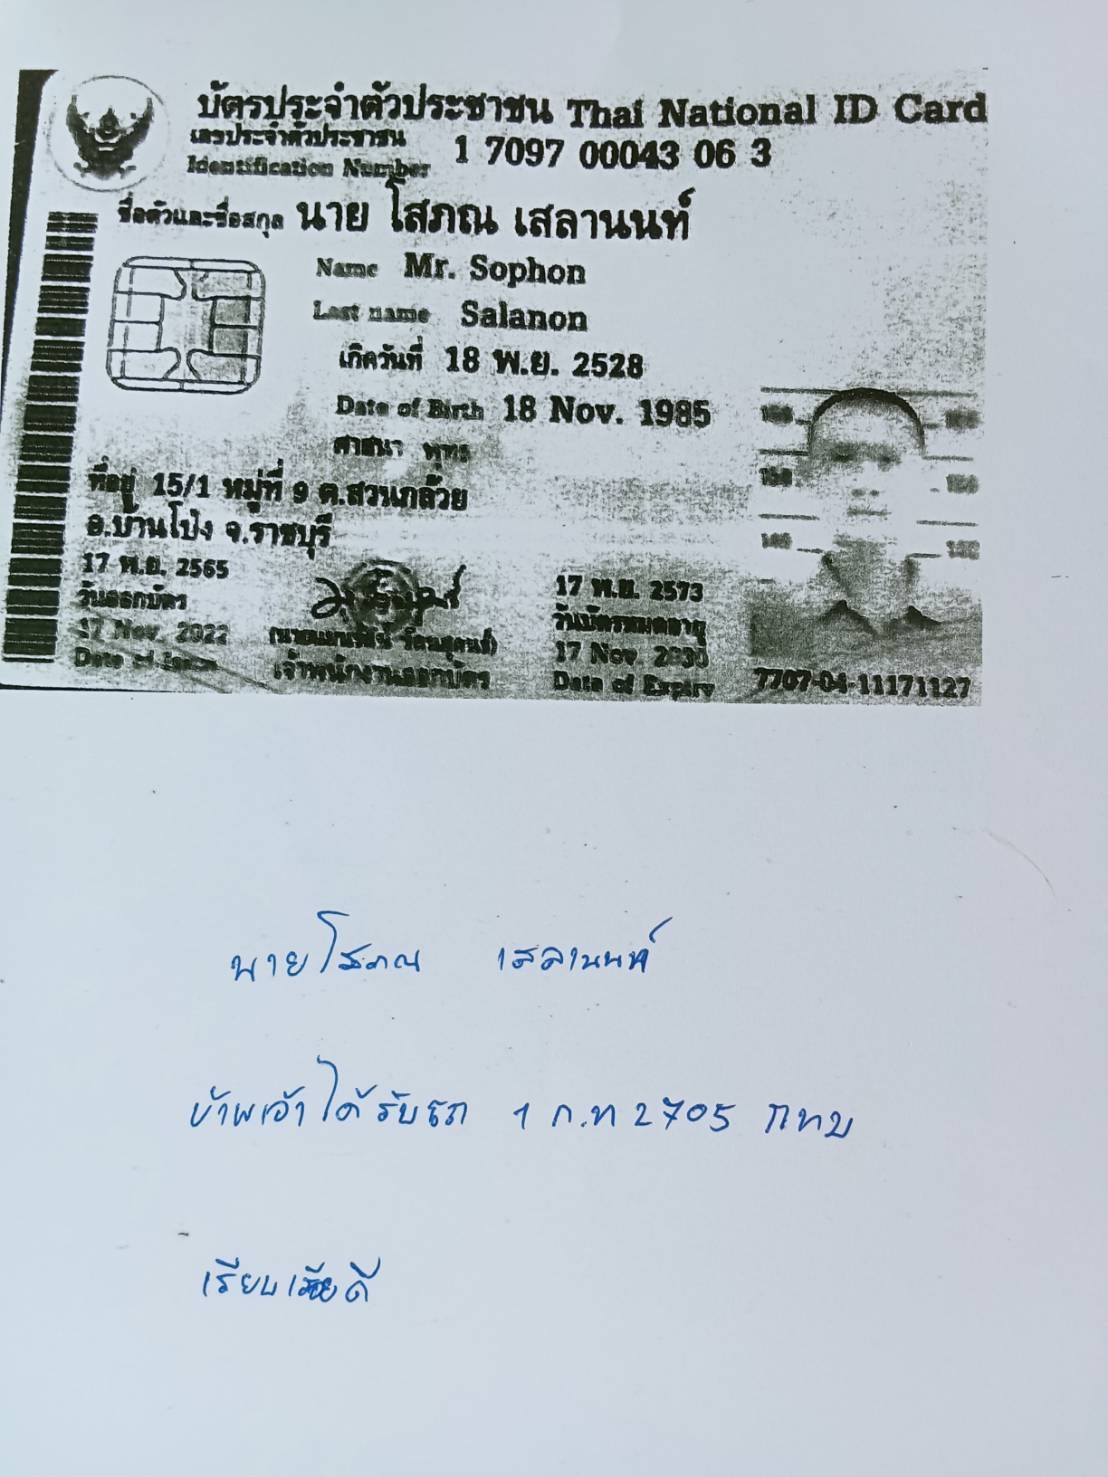 บัตรประจำตัวประชาชน Thai National ID Card
เลขประจำตัวประชาชน
Identification Number 1 7097 00043 06 3
ชื่อตัวและชื่อสกุล นาย โสภณ เสลานนท์
Name Mr. Sophon
Last name Salanon
เกิดวันที่ 18 พ.ย. 2528
Date of Birth 18 Nov. 1985
ศาสนา พุทธ
ที่อยู่ 15/1 หมู่ที่ 9 ต.สวนกล้วย
อ.บ้านโป่ง จ.ราชบุรี
17 พ.ย. 2565
วันออกบัตร
17 Nov. 2022
Date of Issue
เจ้าพนักงานออกบัตร
17 พ.ย. 2573
วันบัตรหมดอายุ
17 Nov. 2030
Date of Expiry
160 160
150 150
140 140
7707-04-11171127
นายโสภณ เสลานนท์
ข้าพเจ้าได้รับรถ 1 ก.ท 2705 กทม
เรียบร้อยดี